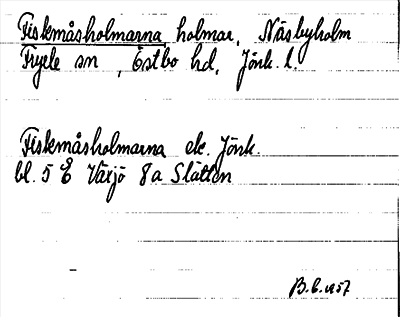 Fiskmåsholmarna, holmar, Näsbyholm
Fryele sn, Östbo hd, Jönk. l.
Fiskmåsholmarna ek. Jönk.
bl. 5 E Växjö 8a Slätten
B.E. 1957